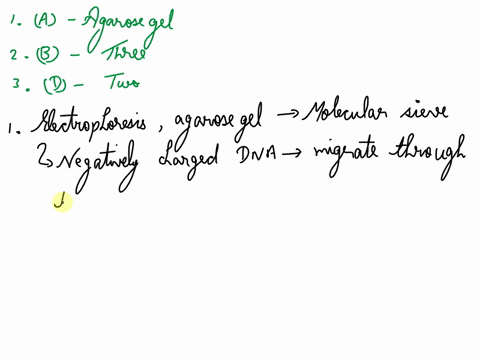 1. (A) - Agarose gel
2. (B) - Three
3. (D) - Two
1. Electrophoresis, agarose gel → Molecular sieve
↳ Negatively charged DNA → migrate through